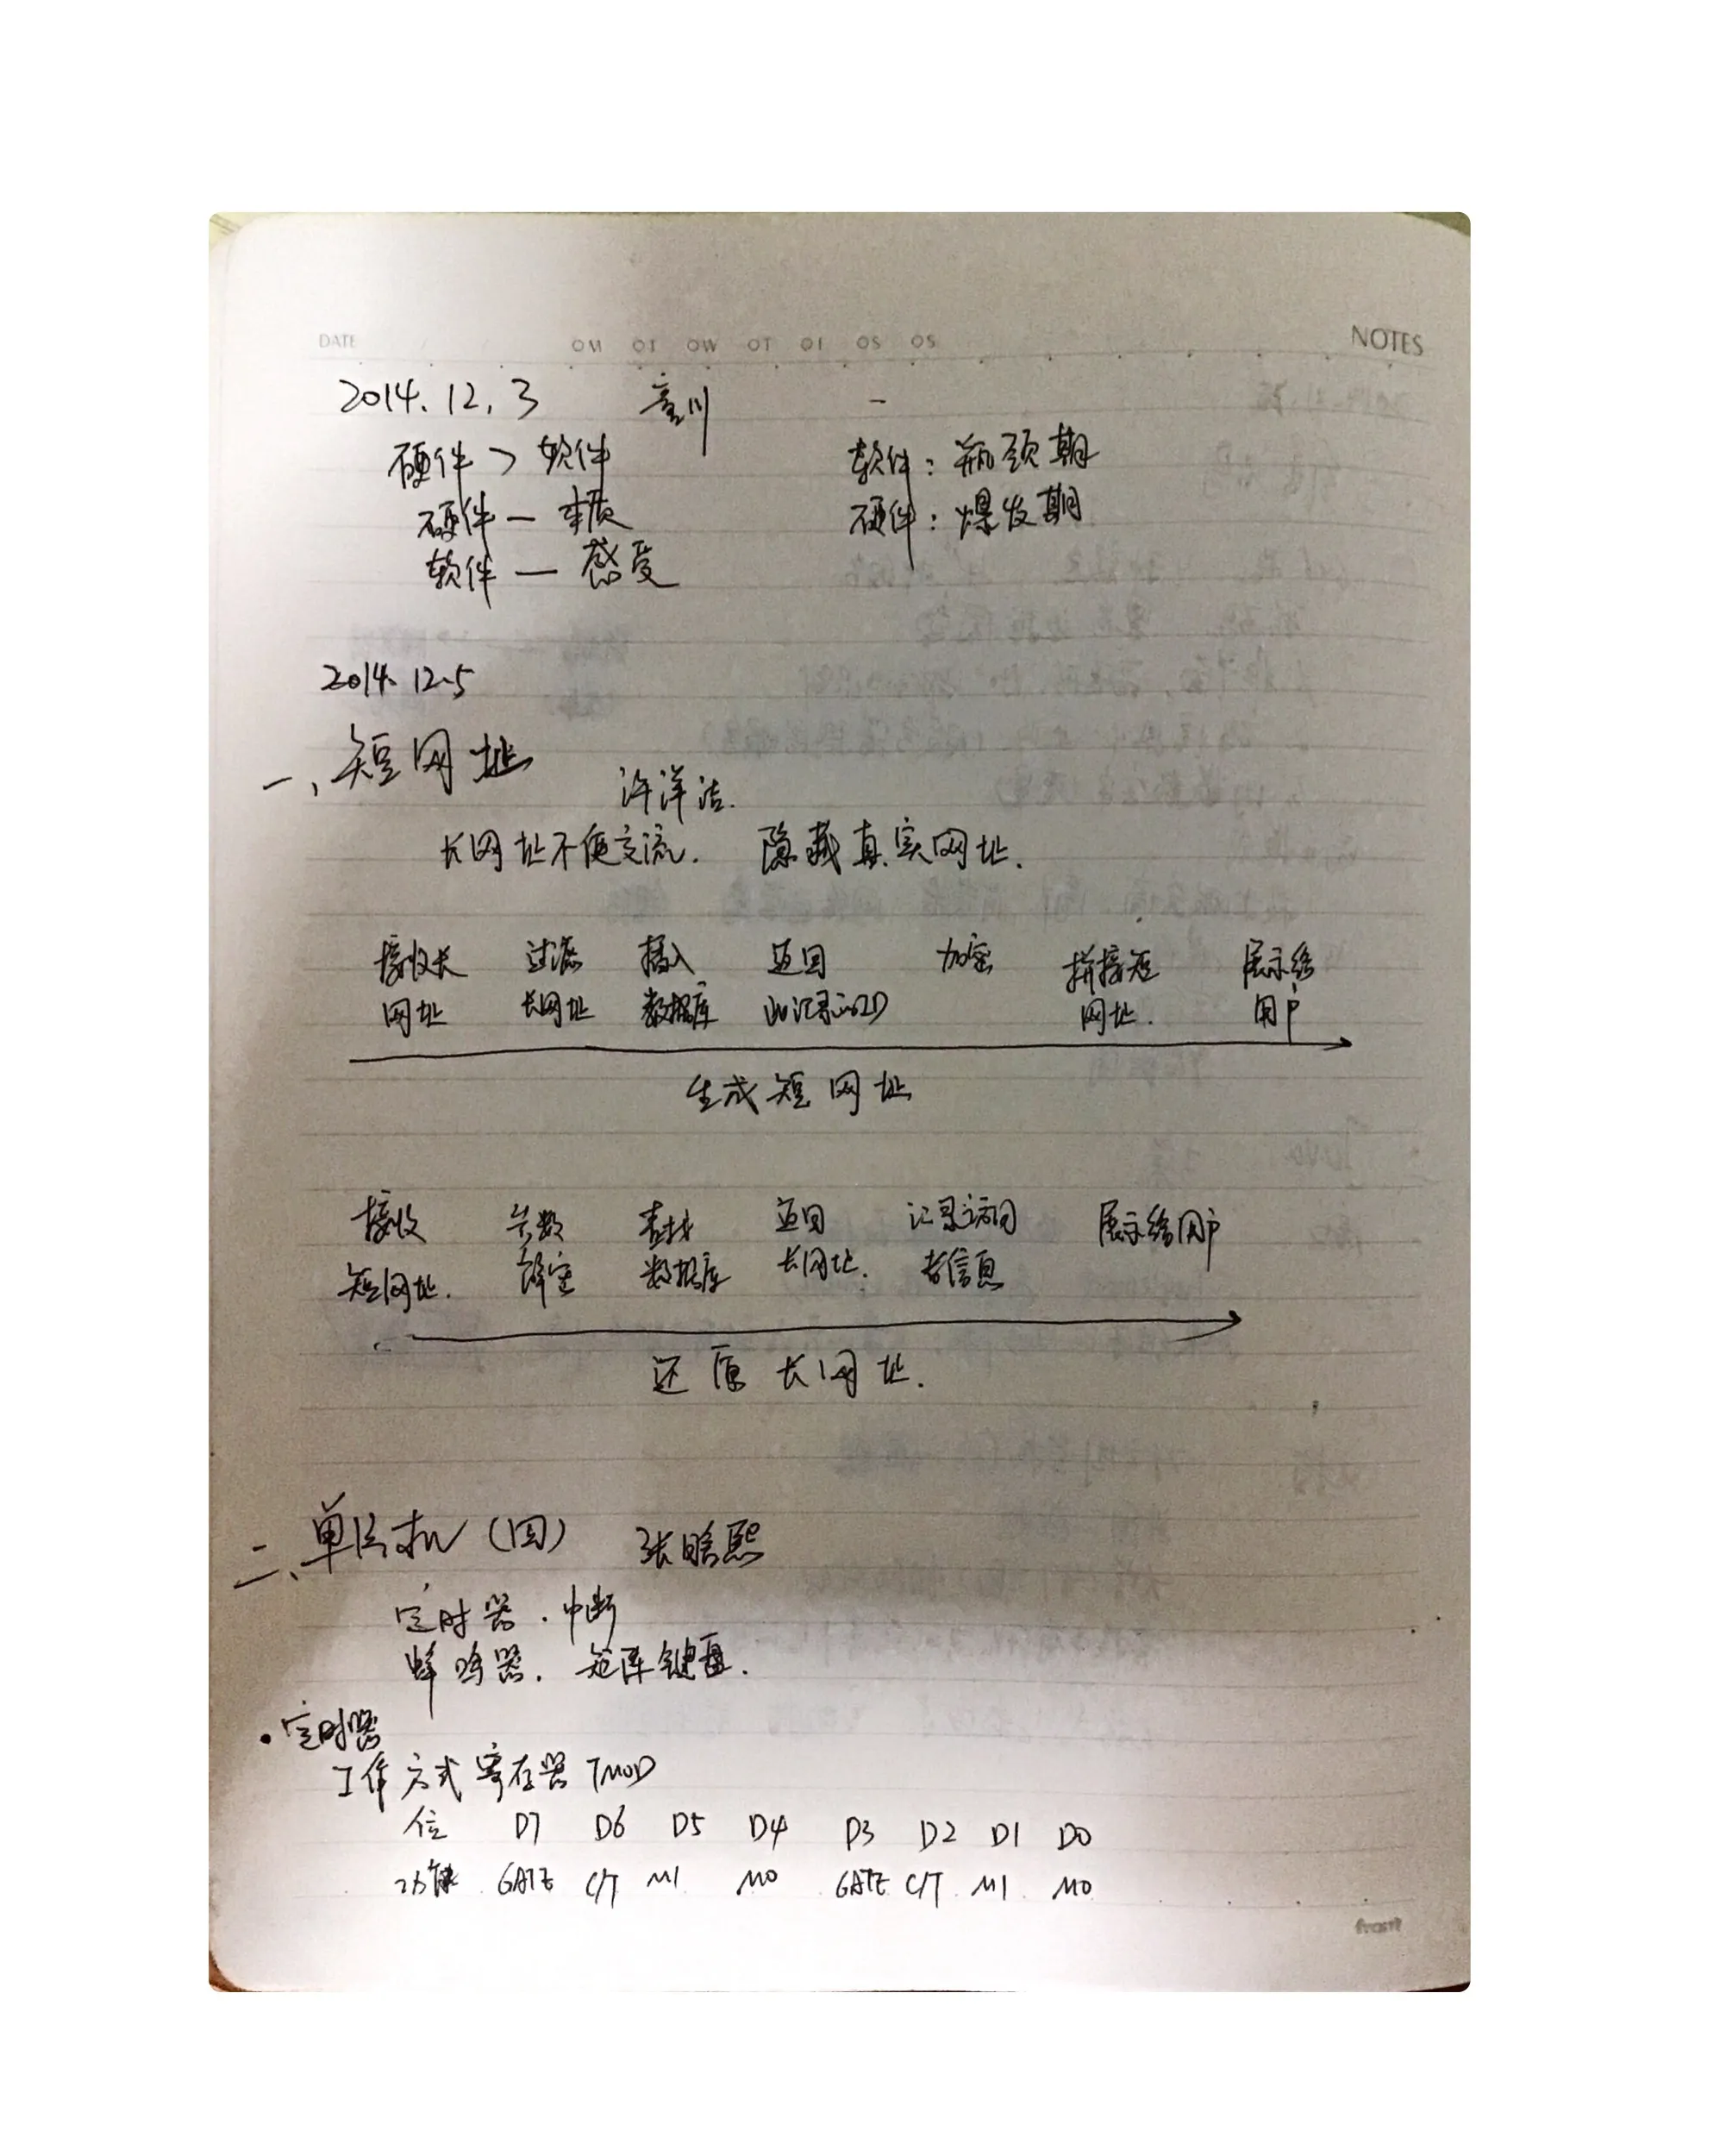 DATE
OM OT OW OT OF OS OS
NOTES
2014.12.3 童川
硬件 > 软件 软件：瓶颈期
硬件 — 本质 硬件：爆发期
软件 — 感受
2014.12.5
一、短网址
许洋洁.
长网址不便交流. 隐藏真实网址.
接收长 过滤 插入 返回 加密 拼接短 展示给
网址 长网址 数据库 此记录的ID 网址. 用户
生成短网址
接收 参数 查找 返回 记录访问 展示给用户
短网址. 数据库 长网址. 者信息
还原长网址.
二、单片机（四） 张晗熙
定时器.中断
蜂鸣器. 矩阵键盘.
•定时器
工作方式寄存器 TMOD
位 D7 D6 D5 D4 D3 D2 D1 D0
功能 GATE C/T M1 M0 GATE C/T M1 M0